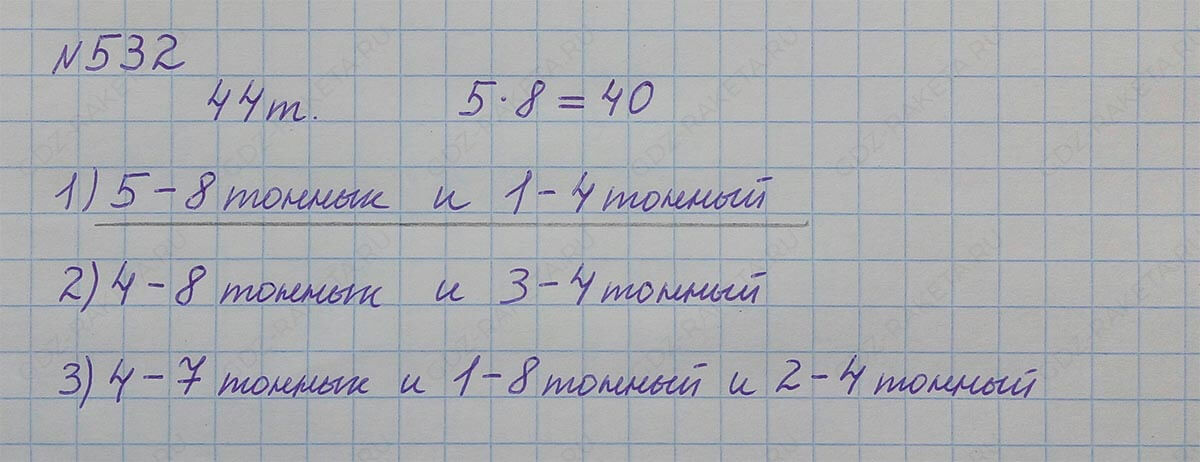 №532
44т. 5·8=40
1) 5-8 тонных и 1-4 тонный
2) 4-8 тонных и 3-4 тонный
3) 4-7 тонных и 1-8 тонный и 2-4 тонный